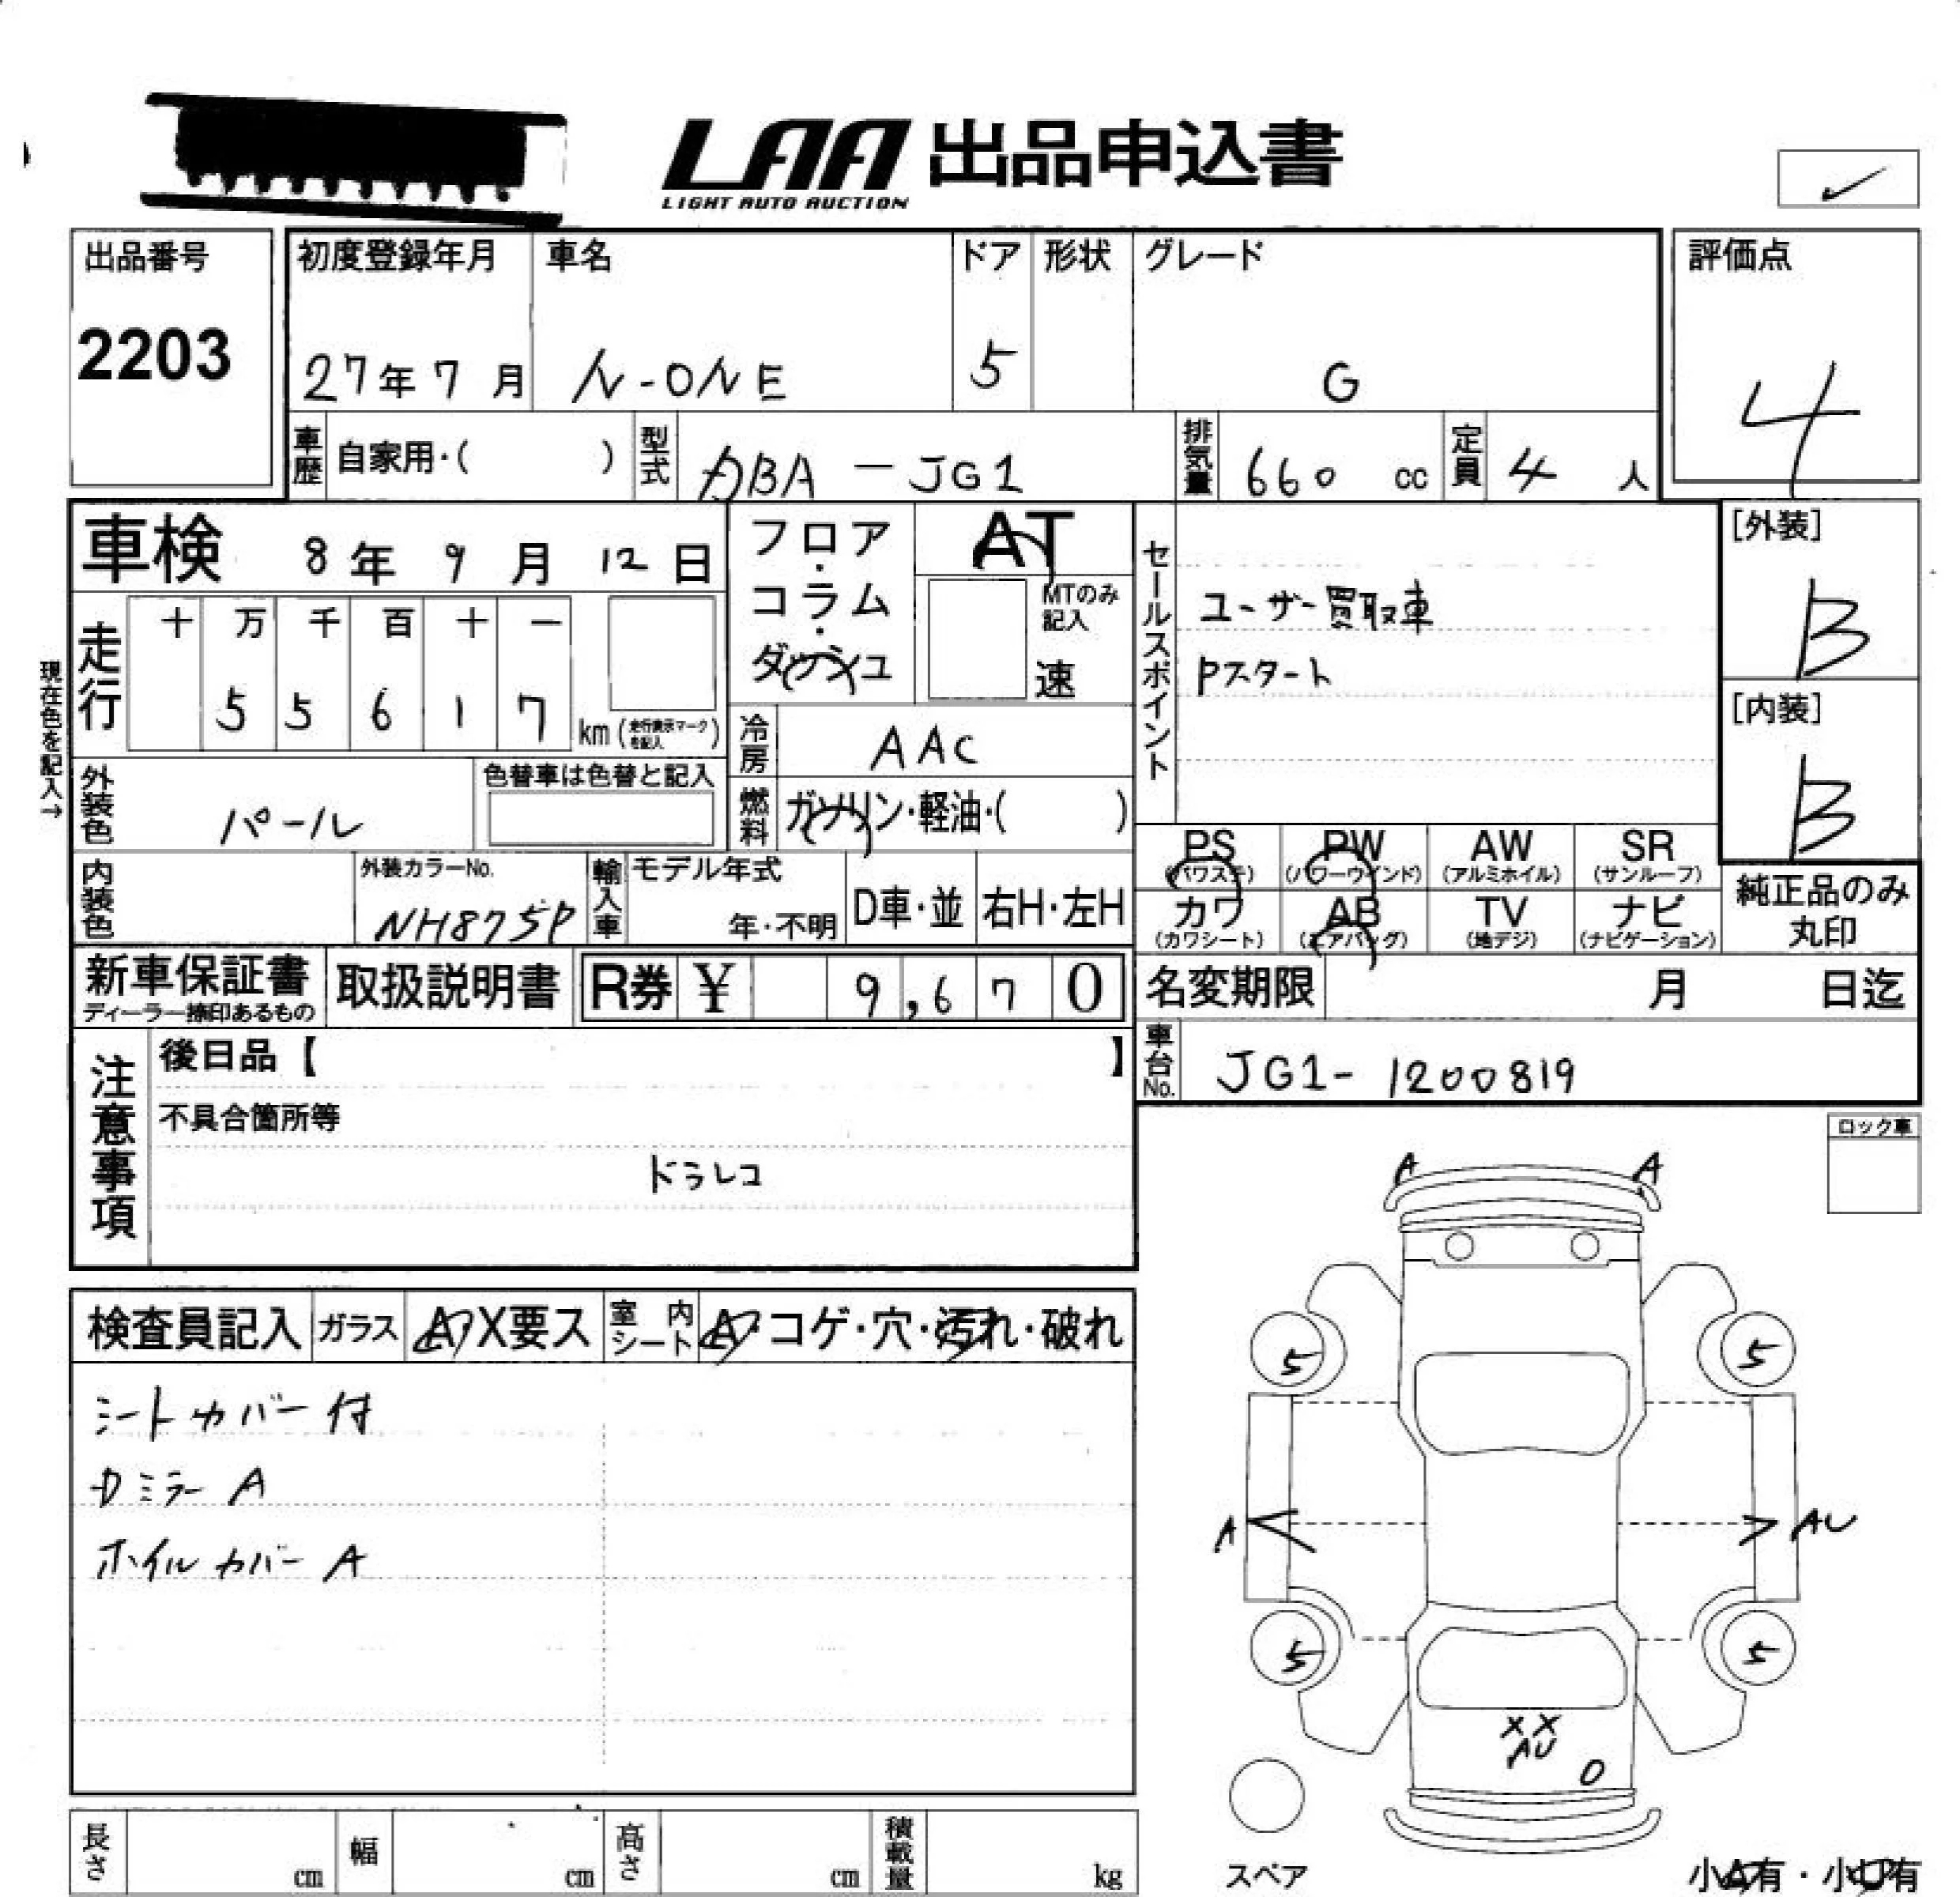 LAA 出品申込書
LIGHT AUTO AUCTION
✓
出品番号
2203
初度登録年月 車名 ドア 形状 グレード
27年7月 N-ONE 5 G
評価点
4
車歴 自家用・( ) 型式 DBA-JG1 排気量 660 cc 定員 4 人
車検 8年 9月 12日
フロア・コラム・ダッシュ
AT
MTのみ記入
速
セールスポイント
ユーザー買取車
Pスタート
[外装]
B
[内装]
B
現在色を記入→
走行 十 万 千 百 十 一
5 5 6 1 7 km (走行表示マークを記入)
冷房 AAC
外装色 パール 色替車は色替と記入
燃料 ガソリン・軽油・( )
PS (パワステ) PW (パワーウインド) AW (アルミホイル) SR (サンルーフ)
カワ (カワシート) AB (エアバッグ) TV (地デジ) ナビ (ナビゲーション)
純正品のみ丸印
内装色 外装カラーNo. NH875P 輸入車 モデル年式 年・不明 D車・並 右H・左H
新車保証書 ディーラー捺印あるもの 取扱説明書 R券 ¥ 9,670
名変期限 月 日迄
車台No. JG1-1200819
注意事項
後日品【 】
不具合箇所等
ドラレコ
ロック車
検査員記入 ガラス A・X要ス 室内シート A・コゲ・穴・汚れ・破れ
シートカバー付
Dミラー A
ホイルカバー A
A A
5 5
A AU
5 5
XX
AU
O
スペア
小A有・小U有
長さ cm 幅 cm 高さ cm 積載量 kg